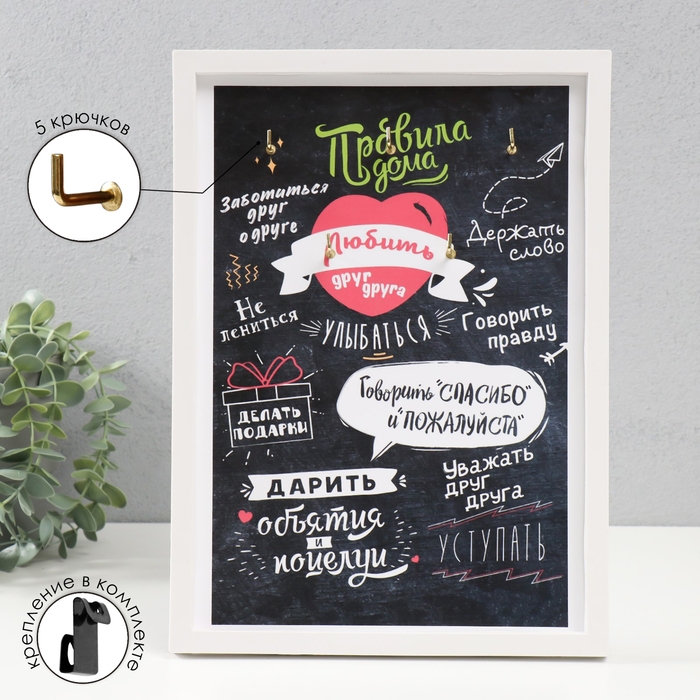 5 крючков
Правила
дома
Заботиться
друг
о друге
Любить
друг
друга
Держать
слово
Не
лениться
УЛЫБАТЬСЯ
Говорить
правду
ДЕЛАТЬ
ПОДАРКИ
Говорить "СПАСИБО"
и "ПОЖАЛУЙСТА"
ДАРИТЬ
объятия
и
поцелуи
Уважать
друг
друга
УСТУПАТЬ
крепление в комплекте